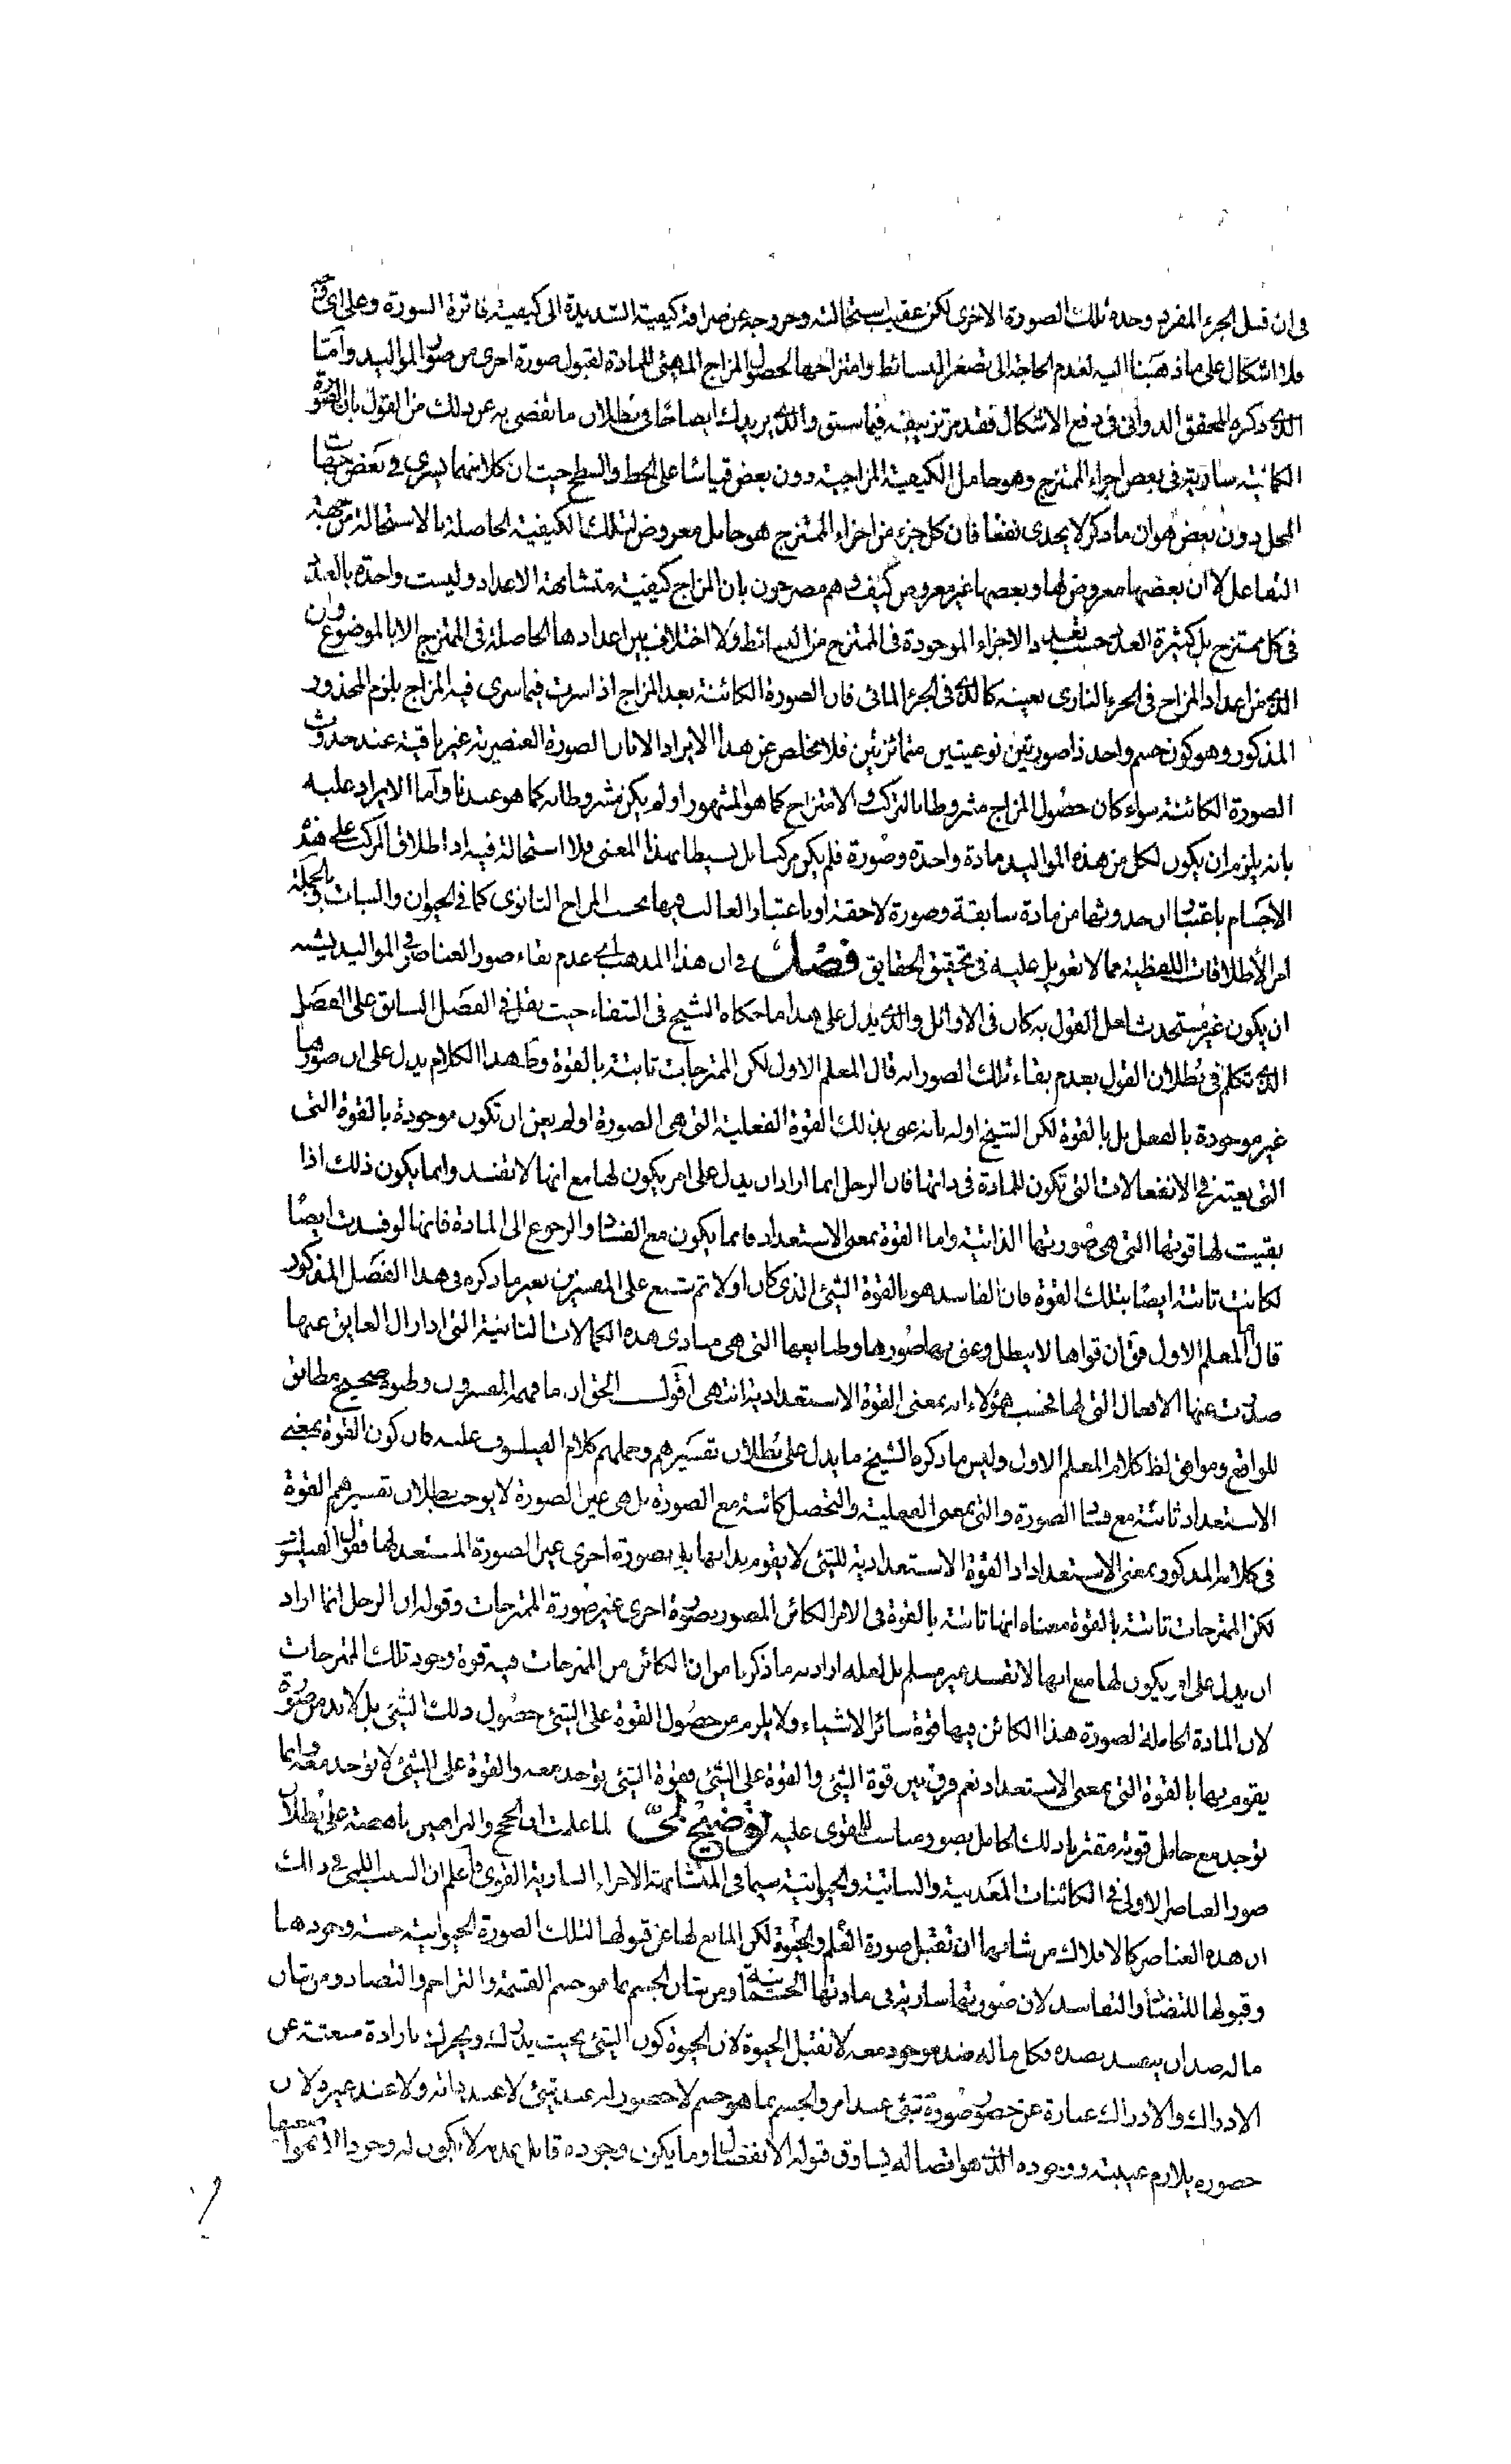 فى ان قبل الجزء المفرد وحده تلك الصورة الاخرى لكن عقيب استحالته وخروجه عن صرافة كيفيته الشديدة الى كيفية فاترة السورة وعلى اى
فلا اشكال على ما ذهبنا اليه لعدم الحاجة الى تصغر البسائط وامتزاجها لحصول المزاج المهيئ للمادة لقبول صورة اخرى من صور المواليد واما
الذى ذكره المحقق الدوانى فى دفع الاشكال فقد مر تزييفه فيما سبق والذى يزيدك ايضاحا فى بطلان ما تفصى به عن ذلك من القول بان الصورة
الكائنة سارية فى بعض اجزاء الممتزج وهو حامل الكيفية المزاجية دون بعض قياسا على الخط والسطح حيث ان كلا منهما يسرى فى بعض جهات
المحل دون بعض هو ان ما ذكر لا يجدى نفعا فان كل جزء من اجزاء الممتزج هو حامل معروض لتلك الكيفية الحاصلة بالاستحالة من جهة
التفاعل لا ان بعضها معروض لها وبعضها غير معروض كيف وهم مصرحون بان المزاج كيفية متشابهة الاعداد وليست واحدة بالعدد
فى كل ممتزج بل كثيرة العدد حسب تعدد الاجزاء الموجودة فى الممتزج من البسائط ولا اختلاف بين اعدادها الحاصلة فى الممتزج الا بالموضوع وان
الذى من اعداد المزاج فى الجزء النارى بعينه كالذى فى الجزء المائى فان الصورة الكائنة بعد المزاج اذا سرت فيما سرى فيه المزاج يلزم المحذور
المذكور وهو كون جسم واحد ذا صورتين نوعيتين متمائزتين فلا مخلص عن هذا الايراد الا بان الصورة العنصرية غير باقية عند حدوث
الصورة الكائنة سواء كان حصول المزاج مشروطا بالتركب والامتزاج كما هو المشهور او لم يكن مشروطا به كما هو عندنا واما الايراد عليه
بانه يلزم ان يكون لكل من هذه المواليد مادة واحدة وصورة فلم يكن مركبا بل بسيطا بهذا المعنى فلا استحالة فيه اذ اطلاق المركب على هذه
الاجسام باعتبار ان حدوثها من مادة سابقة وصورة لاحقة او باعتبار الغالب فيها بحسب المزاج الثانوى كما فى الحيوان والنبات وبالجملة
امر الأطلاقات اللفظية مما لا تعويل عليه فى تحقيق الحقايق فصل فى ان هذا المذهب اى عدم بقاء صور العناصر فى المواليد يشبه
ان يكون غير مستحدث لعل القول به كان فى الاوائل والذى يدل على هذا ما حكاه الشيخ فى الشفاء حيث نقل فى الفصل السابق على الفصل
الذى تكلم فى بطلان القول بعدم بقاء تلك الصور انه قال المعلم الاول لكن الممتزجات ثابتة بالقوة وظ هذا الكلام يدل على ان صورها
غير موجودة بالفعل بل بالقوة لكن الشيخ اوله بانه عنى بذلك القوة الفعلية التى هى الصورة اولم يعن ان تكون موجودة بالقوة التى
التى يعتبر فى الانفعالات التى تكون للمادة فى ذاتها فان الرجل انما اراد ان يدل على امر يكون لها مع انها لا تفسد وانما يكون ذلك اذا
بقيت لها قوتها التى هى صورتها الذاتية واما القوة بمعنى الاستعداد فانما يكون مع الفساد والرجوع الى المادة فانها لو فسدت ايضا
لكانت ثابتة ايضا بتلك القوة فان الفاسد هو بالقوة الشيئ الذى كان اولا ثم شنع على المفسرين بعين ما ذكره فى هذا الفصل المذكور
قال المعلم الاول فق ان قواها لا يبطل وعنى بها صورها وطبايعها التى هى مبادى هذه الكمالات الثانية التى اذا زال العايق عنها
صدرت عنها الافعال التى لها فحسب هؤلاء انه بمعنى القوة الاستعدادية انتهى اقول الحق ان ما فهمه المفسرون ولهوه صحيح مطابق
للواقع وموافق لظ كلام المعلم الاول وليس ما ذكره الشيخ ما يدل على بطلان تفسيرهم وحملهم كلام الفيلسوف عليه فان كون القوة بمعنى
الاستعداد ثابتة مع فساد الصورة والتى بمعنى الفعلية والتحصل كائنة مع الصورة بل هى عين الصورة لا يوجب بطلان تفسيرهم القوة
فى كلامه المذكور بمعنى الاستعداد اذ القوة الاستعدادية للشئ لا يقوم بذاتها بل بصورة اخرى غير الصورة المستعد لها فقول الفيلسوف
لكن الممتزجات ثابتة بالقوة معناه انها ثابتة بالقوة فى الامر الكائن المصور بصورة اخرى غير صورة الممتزجات وقوله ان الرجل انما اراد
ان يدل على امر يكون لها مع انها لا تفسد غير مسلم بل لعله اراد به ما ذكرنا من ان الكائن من الممتزجات فيه قوة وجود تلك الممتزجات
لان المادة الحاملة لصورة هذا الكائن فيها قوة سائر الاشياء ولا يلزم من حصول القوة على الشئ حصول ذلك الشئ بل لا بد من صورة
يقوم بها بالقوة التى بمعنى الاستعداد نعم فرق بين قوة الشئ والقوة على الشئ فقوة الشئ يوجد معه والقوة على الشئ لا توجد معه وانما
توجد مع حامل قوته مقترنا ذلك الحامل بصورة مناسبة للمقوى عليه توضيح لمى لما علمت ان الحجج والبراهين ناهضة على بطلان
صور العناصر الاولى فى الكائنات المعدنية والنباتية والحيوانية سيما فى المتشابهة الاجزاء المتساوية القوى فاعلم ان السبب اللمى فى ذلك
ان هذه العناصر كالافلاك من شانها ان تقبل صورة العلم والحيوة لكن المانع لها عن قبولها لتلك الصورة الحيوانية خسة وجودها
وقبولها للتضاد والتفاسد لان صورتها سارية فى مادتها الجسمانية ومن شان الجسم بما هو جسم القسمة والتزاحم والتضاد ومن شان
ما له ضد ان يفسد بضده فكل ما له ضد موجود معه لا تقبل الحيوة لان الحيوة كون الشئ بحيث يدرك ويحرك بارادة منبعثة عن
الادراك والادراك عبارة عن حصول صورة شئ عند امر والجسم بما هو جسم لا حضور له عند شئ لا عند ذاته ولا عند غيره لان
حضوره يلازم غيبته ووجوده الذى هو اتصاله يساوق قبوله الانفصال وما يكون وجوده قابل عدمه لا يكون له وجود